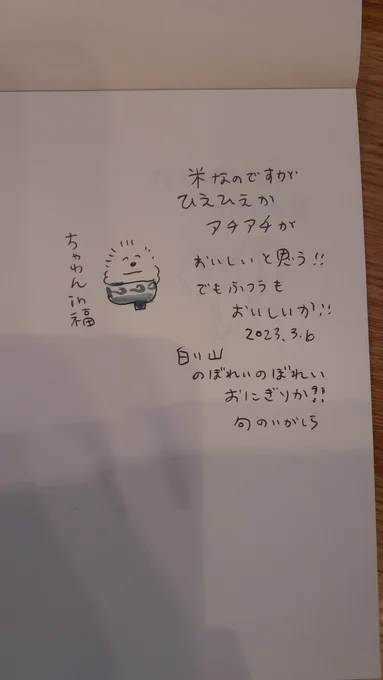 米なのですが
ひえひえか
アチアチが
おいしいと思う!!
でもふつうも
おいしいか!!
2023.3.6
白い山
のぼれいのぼれい
おにぎりか!!
句のいがしら
ちゃわん in 福